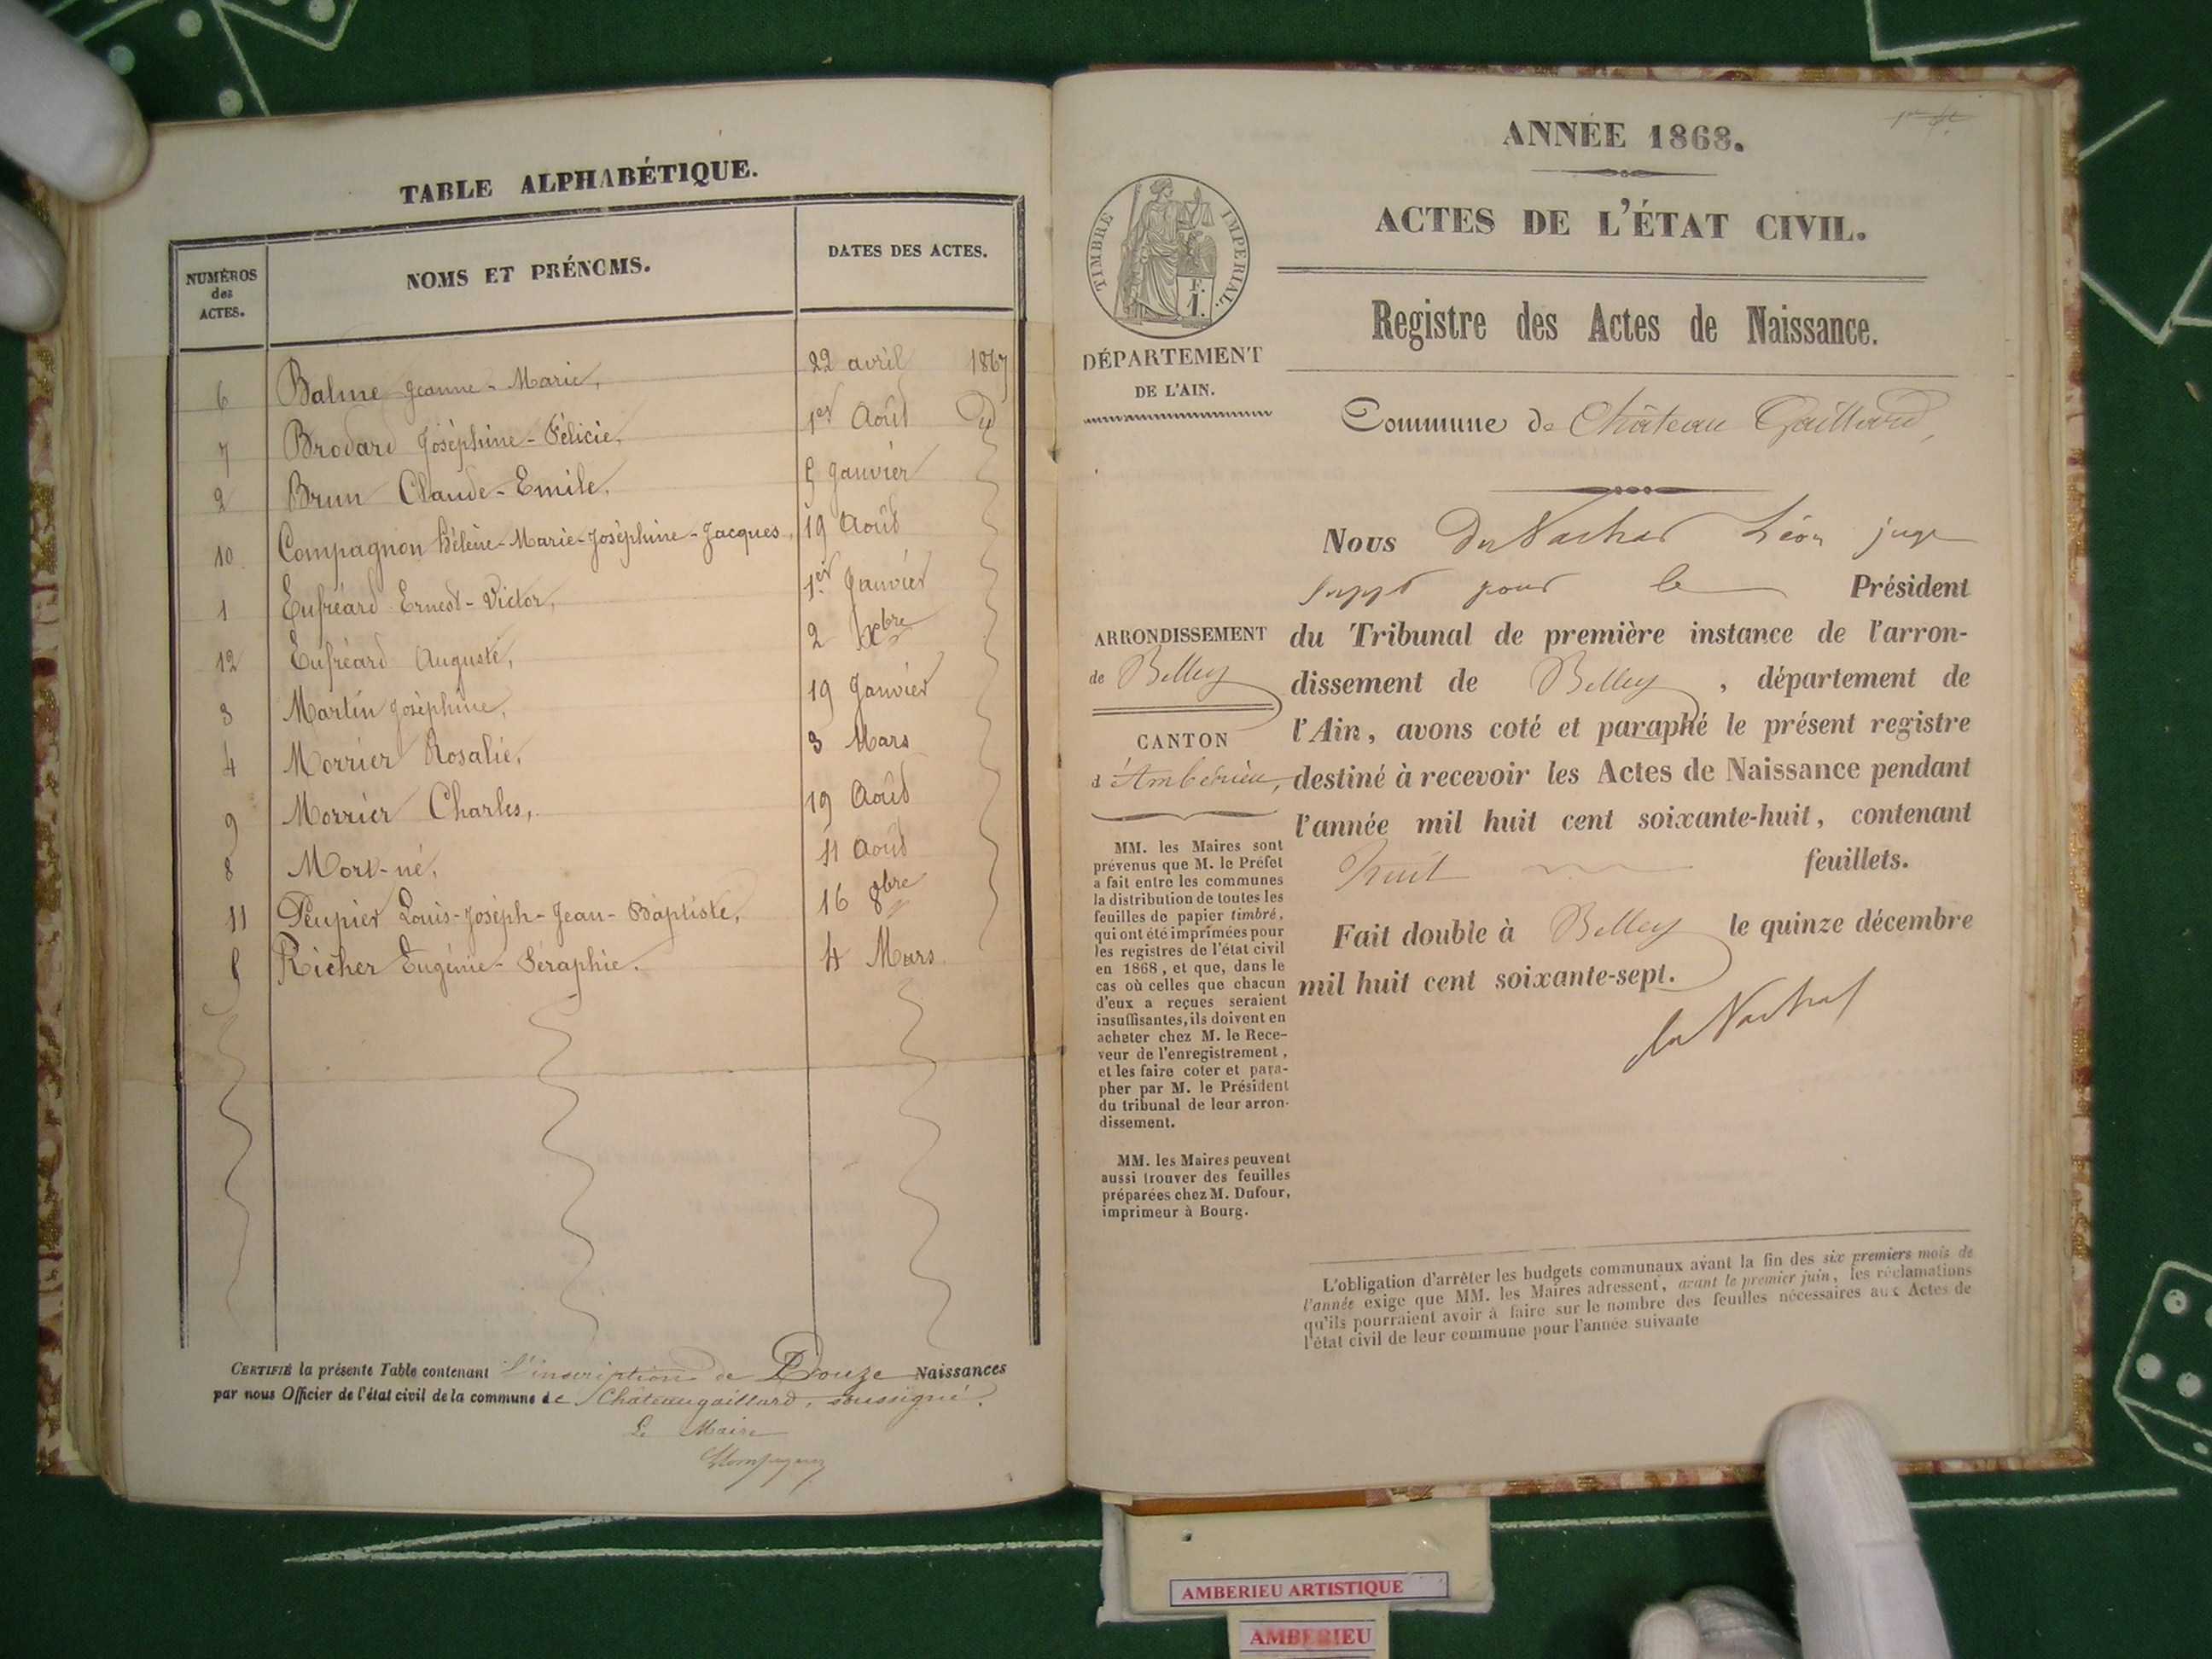 TABLE ALPHABÉTIQUE.
NUMÉROS des ACTES. NOMS ET PRÉNOMS. DATES DES ACTES.
6 Balme Jeanne-Marie, 22 avril 1867
7 Brodard Joséphine-Félicie, 1er Août Id
2 Brun Claude-Emile, 5 Janvier
10 Compagnon Hélène-Marie-Joséphine-Jacques, 19 Août
1 Eufréard Ernest-Victor, 1er Janvier
12 Eufréard Auguste, 2 Xbre
3 Martin Joséphine, 19 Janvier
4 Morrier Rosalie, 3 Mars
9 Morrier Charles, 19 Août
8 Mort-né, 11 Août
11 Peupier Louis-Joseph-Jean-Baptiste, 16 8bre
5 Richer Eugénie-Séraphie. 4 Mars
CERTIFIÉ la présente Table contenant l'inscription de Douze Naissances
par nous Officier de l'état civil de la commune de Châteaugaillard, soussigné.
Le Maire
Compagnon
ANNÉE 1868.
ACTES DE L'ÉTAT CIVIL.
Registre des Actes de Naissance.
TIMBRE IMPERIAL.
F.
1.
DÉPARTEMENT
DE L'AIN.
Commune de Château Gaillard,
Nous Léon juge
suppt pour le Président
du Tribunal de première instance de l'arron-
dissement de Belley, département de
l'Ain, avons coté et paraphé le présent registre
destiné à recevoir les Actes de Naissance pendant
l'année mil huit cent soixante-huit, contenant
huit feuillets.
Fait double à Belley le quinze décembre
mil huit cent soixante-sept.
ARRONDISSEMENT
de Belley
CANTON
d'Ambérieu,
MM. les Maires sont
prévenus que M. le Préfet
a fait entre les communes
la distribution de toutes les
feuilles de papier timbré,
qui ont été imprimées pour
les registres de l'état civil
en 1868, et que, dans le
cas où celles que chacun
d'eux a reçues seraient
insuffisantes, ils doivent en
acheter chez M. le Rece-
veur de l'enregistrement,
et les faire coter et para-
pher par M. le Président
du tribunal de leur arron-
dissement.
MM. les Maires peuvent
aussi trouver des feuilles
préparées chez M. Dufour,
imprimeur à Bourg.
L'obligation d'arrêter les budgets communaux avant la fin des six premiers mois de
l'année exige que MM. les Maires adressent, avant le premier juin, les réclamations
qu'ils pourraient avoir à faire sur le nombre des feuilles nécessaires aux Actes de
l'état civil de leur commune pour l'année suivante
AMBERIEU ARTISTIQUE
AMBERIEU